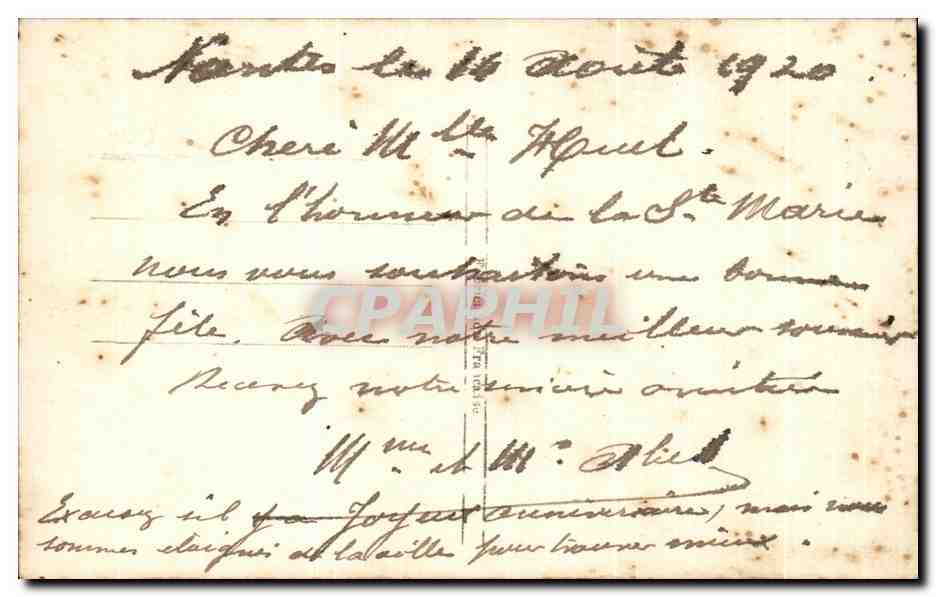 Nantes le 14 Août 1920.
Cheré Mlle Huel.
En l'honneur de la Ste Marie
nous vous souhaitons une bonne
fête. Avec notre meilleur souvenir
Recevez notre sincère amitié
Mme et Mr
Excusez s'il y a Joyeux anniversaire, mais nous
sommes eloignés de la ville pour trouver mieux.
CPAPHIL
Française